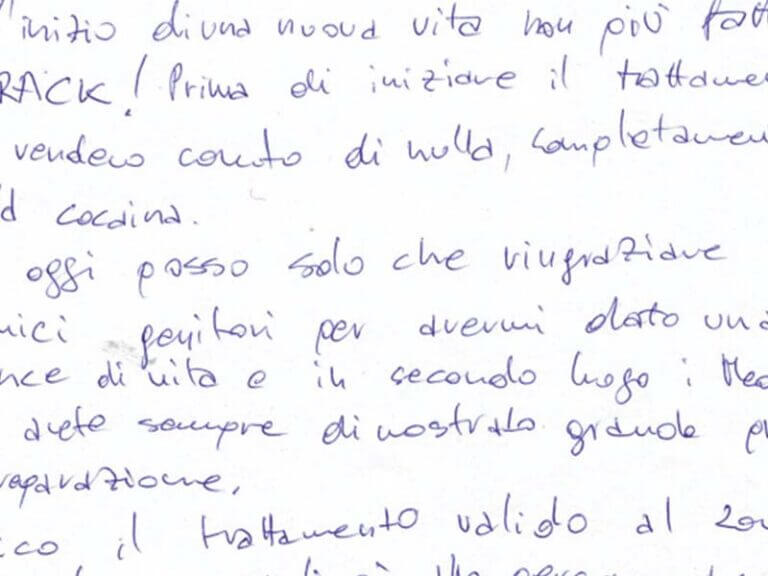 inizio di una nuova vita non più fatt
RACK! Prima di iniziare il trattamen
vendevo conto di nulla, completamen
cocaina.
oggi posso solo che ringraziare
mici genitori per avermi dato una
nce di vita e in secondo luogo i Med
avete sempre dimostrato grande pr
reparazione,
ico il trattamento valido al 200